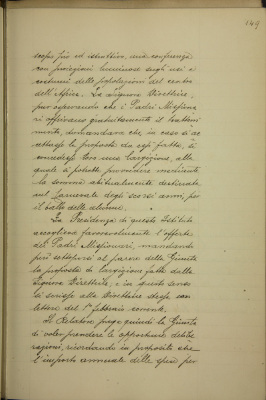 149
scopo pio ed istruttivo, una conferenza
con proiezioni luminose sugli usi e
costumi delle popolazioni del centro
dell'Africa. La Signora Direttrice,
pur osservando che i Padri Missiona
ri offrivano gratuitamente il tratteni
mento, domandava che in caso si ac
cettasse la proposta da essi fatta, si
concedesse loro una largizione, alla
quale si potrebbe provvedere mediante
la somma abitualmente destinata
nel Carnevale degli scorsi anni, per
il ballo delle alunne.
La Presidenza di questo Istituto
accoglieva favorevolmente l'offerta
dei Padri Missionari, mandando
però sottoporsi al parere della Giunta
la proposta di largizione fatta dalla
Signora Direttrice, e in questo senso
si scrisse alla Direttrice stessa con
lettera del 1° febbraio corrente.
Il Relatore prega quindi la Giunta
di voler prendere le opportune delibe
razioni, ricordando in proposito che
l'importo annuale delle spese per